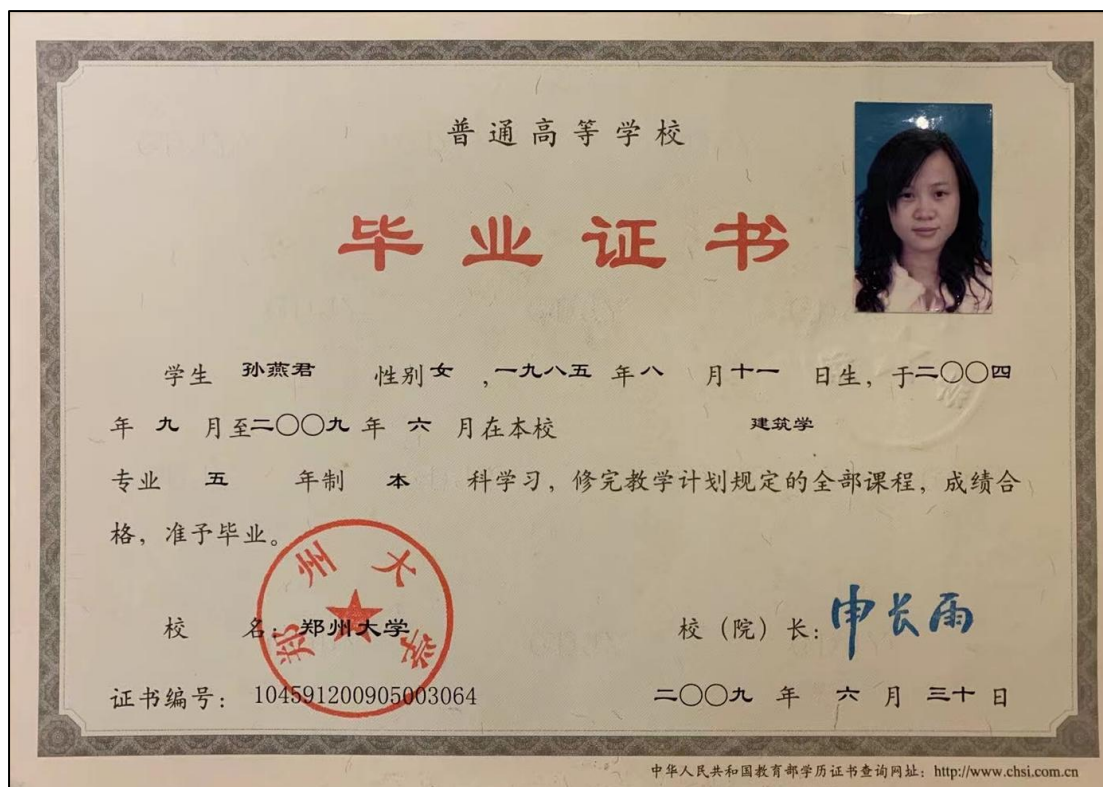 普通高等学校
毕业证书
学生 孙燕君 性别 女 ,一九八五 年 八 月 十一 日生，于二〇〇四
年 九 月至二〇〇九 年 六 月在本校 建筑学
专业 五 年制 本 科学习，修完教学计划规定的全部课程，成绩合
格，准予毕业。
郑州大学
校 名：郑州大学 校（院）长：申长雨
证书编号：104591200905003064 二〇〇九 年 六 月 三十 日
中华人民共和国教育部学历证书查询网址：http://www.chsi.com.cn